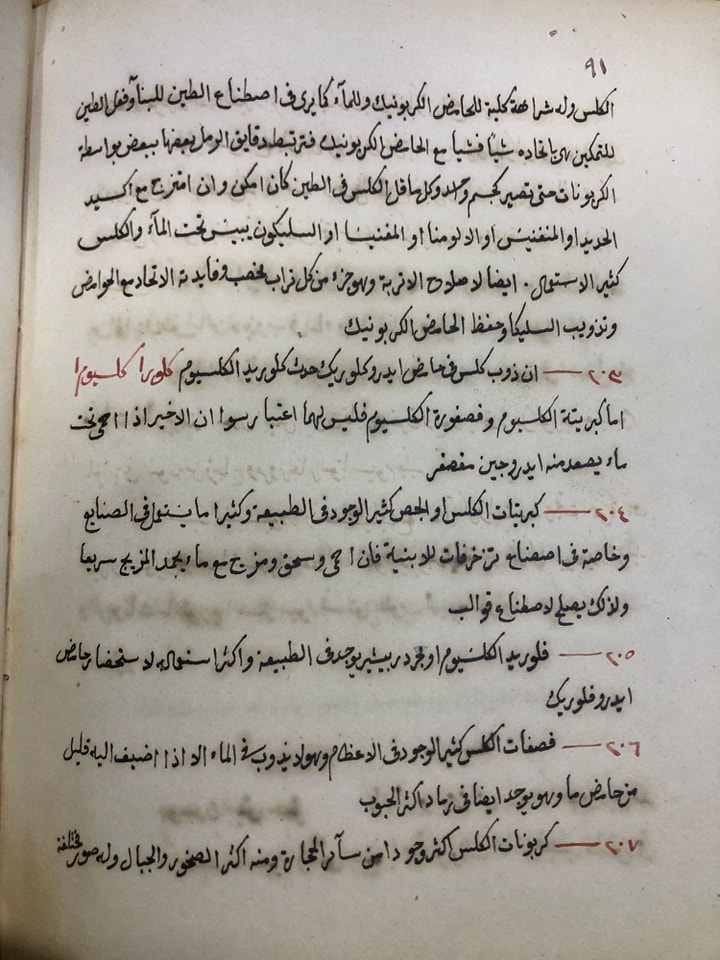 ٩١
الكلس وله شراهة كلية للحامض الكربونيك وللمآء كما يرى فى اصطناع الطين للبنآ وفعل الطين
للتمكين هو باتحاده شيأ فشيأ مع الحامض الكربونيك فترتبط دقايق الرمل بعضها ببعض بواسطة
الكربونات حتى تصير كجسم واحد وكل ما قل الكلس فى الطين كان امكن وان امتزج مع اكسيد
الحديد او المنغنيس او الالومنا او المغنيسا او السليكون ييبس تحت المآء والكلس
كثير الاستعمال . ايضا لاصلاح الاتربة وهو جزء من كل تراب مخصب وفايدته الاتحاد مع الحوامض
وتذويب السليكا وحفظ الحامض الكربونيك
٢٠٣ — ان ذوب كلس فى حامض ايدروكلوريك حدث كلوريد الكلسيوم كلورا كلسيوم ا
اما كبريتة الكلسيوم وفصفورة الكلسيوم فليس لهما اعتبار سوا ان الاخير اذا احمى تحت
ماء يصعد منه ايدروجين مفصفر
٢٠٤ — كبريتات الكلس او الجص كثير الوجود فى الطبيعة وكثيرا ما يستعمل فى الصنايع
وخاصة فى اصطناع تزخرفات للابنية فان احمى وسحق ومزج مع ماء يجمد المزيج سريعا
ولذلك يصلح لاصطناع قوالب
٢٠٥ — فلوريد الكلسيوم او يوجد فى الطبيعة واكثر استعماله لاستحضار حامض
ايدروفلوريك
٢٠٦ — فصفات الكلس كثير الوجود فى الاعظام وهو لا يذوب فى الماء الا اذا اضيف اليه قليل
من حامض ما وهو يوجد ايضا فى رماد اكثر الحبوب
٢٠٧ — كربونات الكلس اكثر وجودا من سآئر الحجارة ومنه اكثر الصخور والجبال وله صور مختلفة